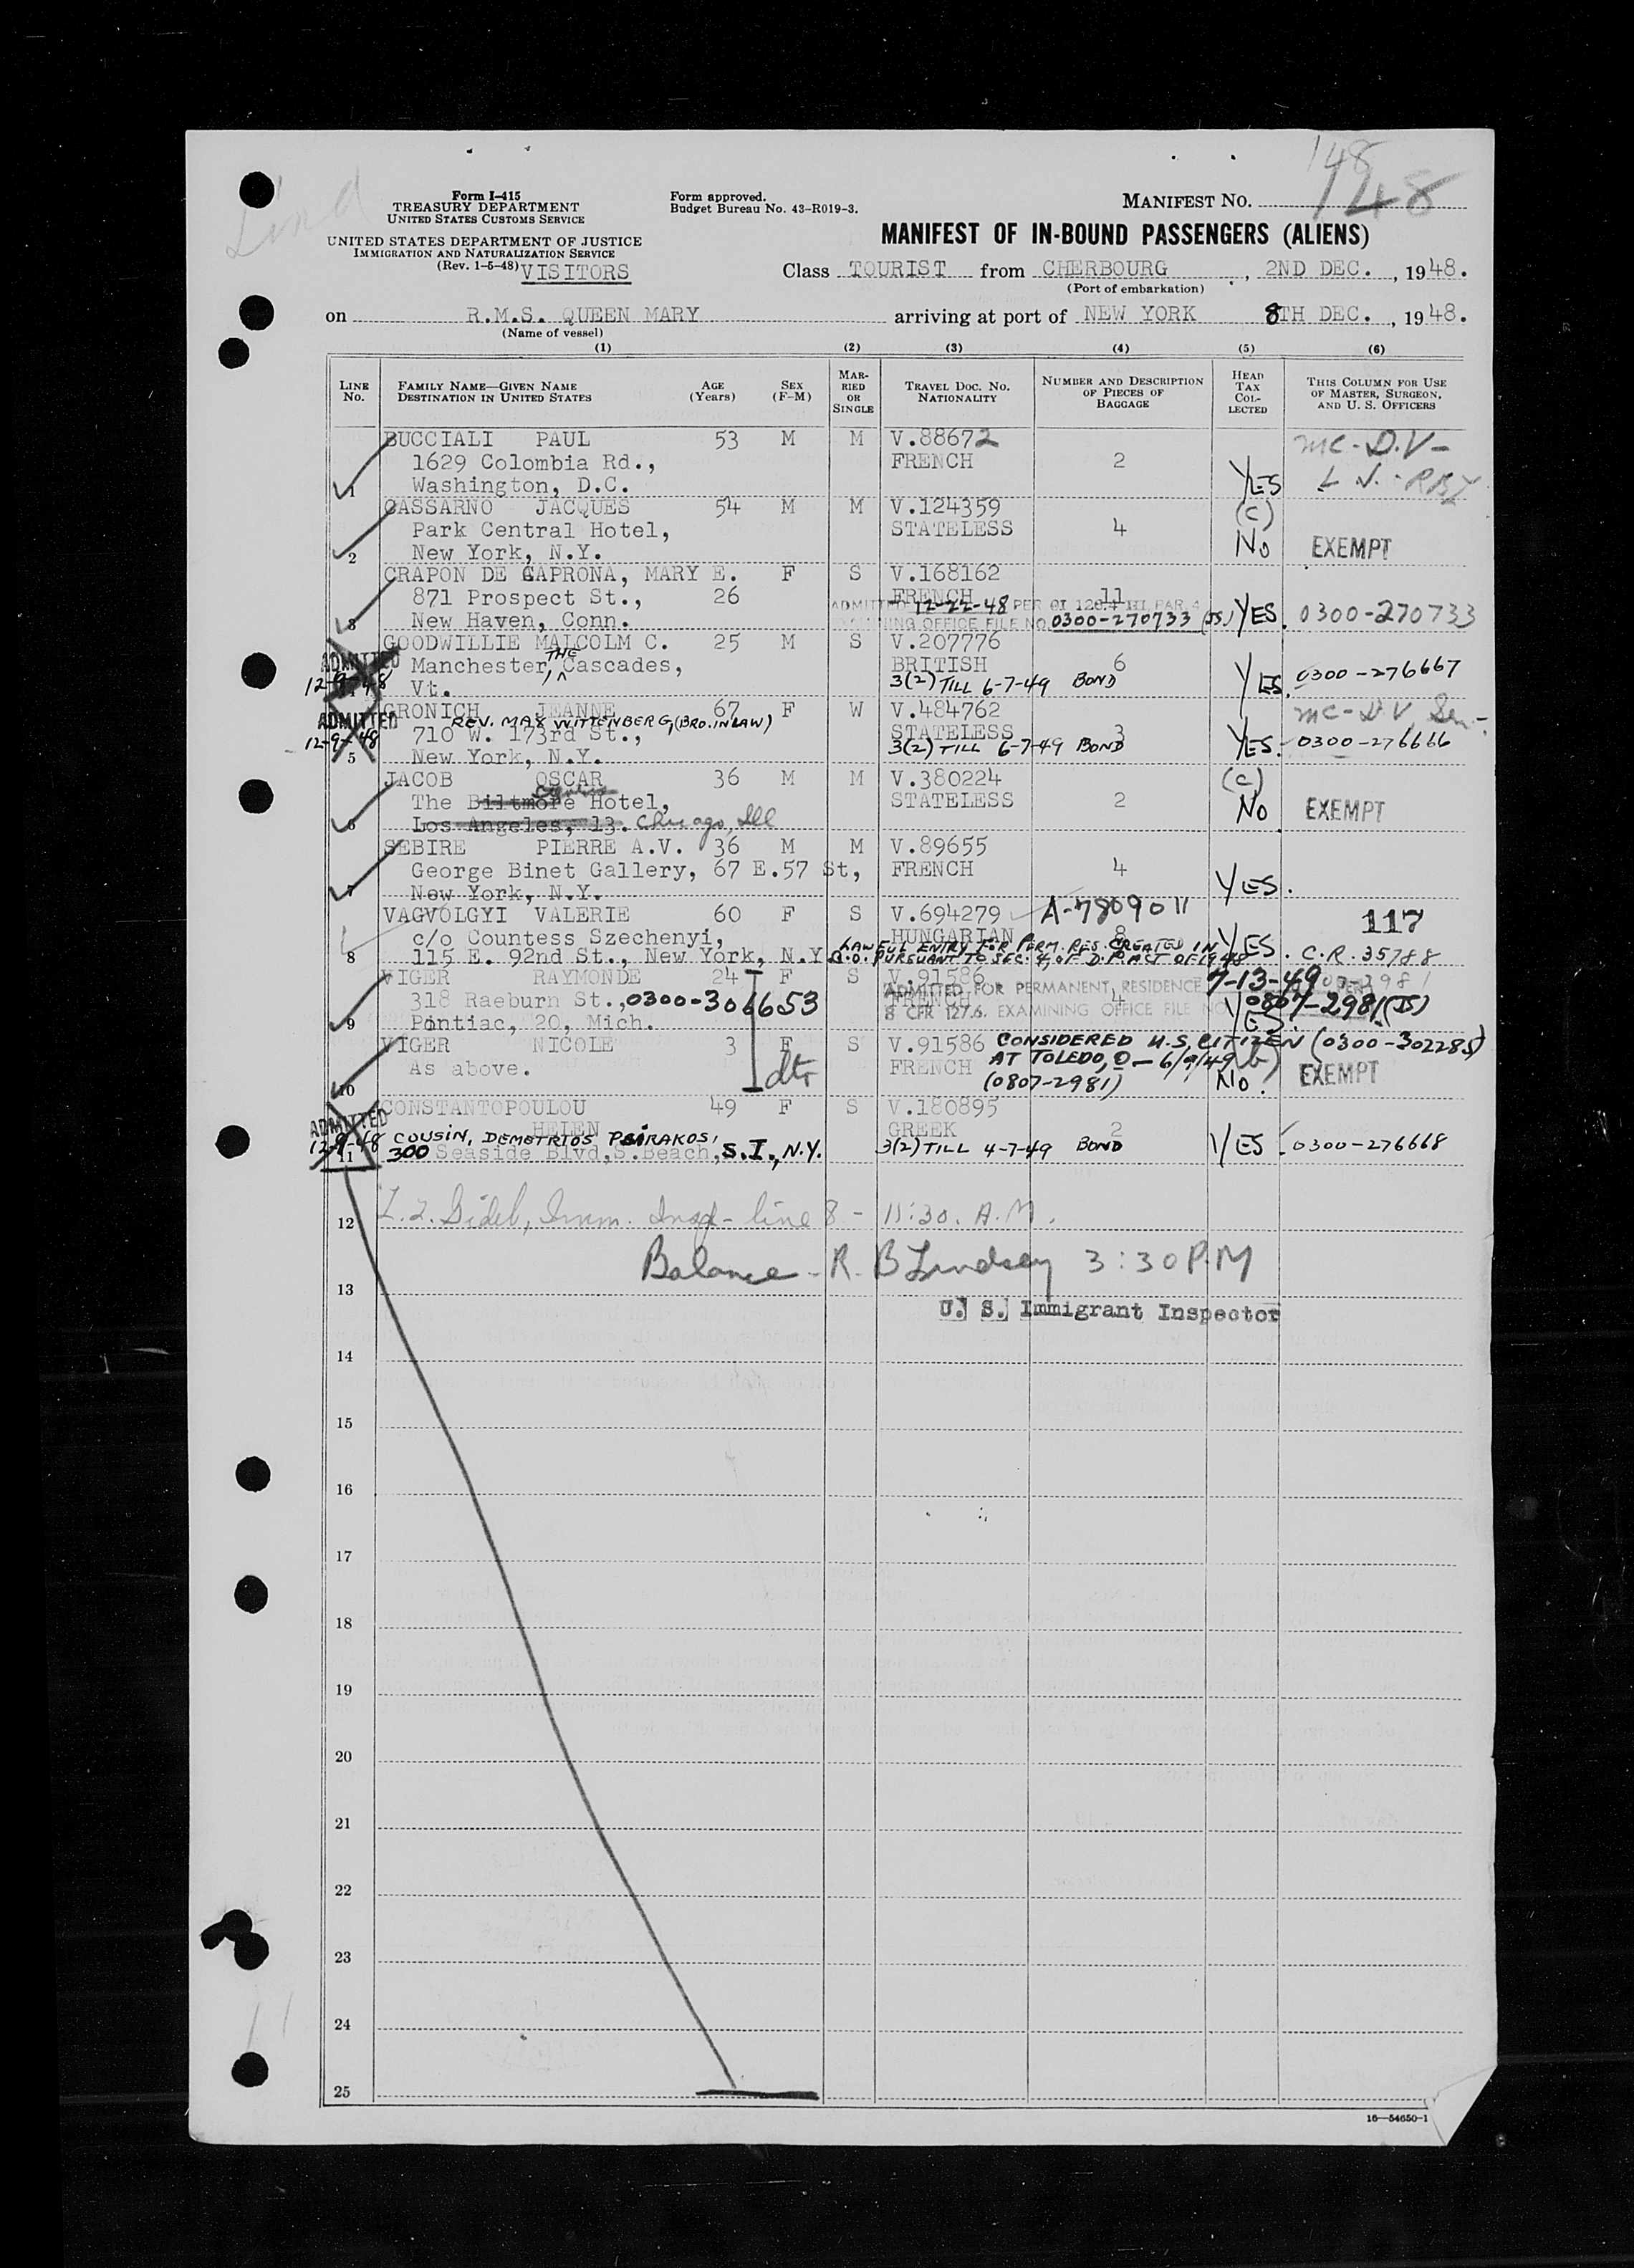 148
148
Form I-415
TREASURY DEPARTMENT
UNITED STATES CUSTOMS SERVICE
UNITED STATES DEPARTMENT OF JUSTICE
IMMIGRATION AND NATURALIZATION SERVICE
(Rev. 1-5-48) VISITORS
Form approved.
Budget Bureau No. 43-R019-3.
MANIFEST NO.
MANIFEST OF IN-BOUND PASSENGERS (ALIENS)
Class TOURIST from CHERBOURG, 2ND DEC., 1948.
(Port of embarkation)
on R.M.S. QUEEN MARY arriving at port of NEW YORK 8TH DEC., 1948.
(Name of vessel)
(1) (2) (3) (4) (5) (6)
LINE NO. FAMILY NAME—GIVEN NAME DESTINATION IN UNITED STATES AGE (Years) SEX (F-M) MARRIED OR SINGLE TRAVEL DOC. NO. NATIONALITY NUMBER AND DESCRIPTION OF PIECES OF BAGGAGE HEAD TAX COLLECTED THIS COLUMN FOR USE OF MASTER, SURGEON, AND U. S. OFFICERS
BUCCIALI PAUL 53 M M V.88672 mc-D.V-
1629 Colombia Rd., FRENCH 2
1 Washington, D.C. YES
CASSARNO JACQUES 54 M M V.124359 (c)
Park Central Hotel, STATELESS 4
2 New York, N.Y. No EXEMPT
CRAPON DE CAPRONA, MARY E. F S V.168162
871 Prospect St., 26 FRENCH 11
ADMITTED 12-22-48 PER OI 120.4 III PAR. 4
3 New Haven, Conn. EXAMINING OFFICE FILE NO 0300-270733 (JS) YES. 0300-270733
GOODWILLIE MALCOLM C. 25 M S V.207776
ADMITTED Manchester, THE Cascades, BRITISH 6
12-9-48 Vt. 3(2) TILL 6-7-49 BOND YES. 0300-276667
GRONICH JEANNE 67 F W V.484762 mc-D.V. Sen.-
ADMITTED REV. MAX WITTENBERG, (BRO. IN LAW)
12-9-48 710 W. 173rd St., STATELESS 3
3(2) TILL 6-7-49 BOND YES. 0300-276666
5 New York, N.Y.
JACOB OSCAR 36 M M V.380224 (c)
The Biltmore Hotel, STATELESS 2 No EXEMPT
6 Los Angeles, 13. Chicago, Ill
SEBIRE PIERRE A.V. 36 M M V.89655
George Binet Gallery, 67 E.57 St, FRENCH 4
7 New York, N.Y. YES.
VAGVOLGYI VALERIE 60 F S V.694279 A-7809011 117
c/o Countess Szechenyi, HUNGARIAN 8
LAWFUL ENTRY FOR PERM. RES. CREATED IN
8 115 E. 92nd St., New York, N.Y. C.O. PURSUANT TO SEC. 4, OF D.P. ACT OF 1948 YES. C.R. 35788
VIGER RAYMONDE 24 F S V.91586 7-13-49
ADMITTED FOR PERMANENT RESIDENCE
318 Raeburn St., 0300-306653 FRENCH 4
8 CFR 127.6. EXAMINING OFFICE FILE NO 0807-2981 (JS)
9 Pontiac, 20, Mich. YES.
VIGER NICOLE 3 F S V.91586 CONSIDERED U.S. CITIZEN (0300-302285)
As above. dtr FRENCH AT TOLEDO, O - 6/9/49 (b)
10 (0807-2981) No. EXEMPT
CONSTANTOPOULOU 49 F S V.180895
ADMITTED HELEN GREEK 2
12-9-48 COUSIN, DEMETRIOS PSIRAKOS, 3(2) TILL 4-7-49 BOND YES 0300-276668
11 300 Seaside Blvd, S. Beach, S.I., N.Y.
12 Imm. Insp- line 8 - 11:30. A.M.
Balance - R. B Lindsey 3:30 P.M
13
U. S. Immigrant Inspector
14
15
16
17
18
19
20
21
22
23
24
25
16—54650-1